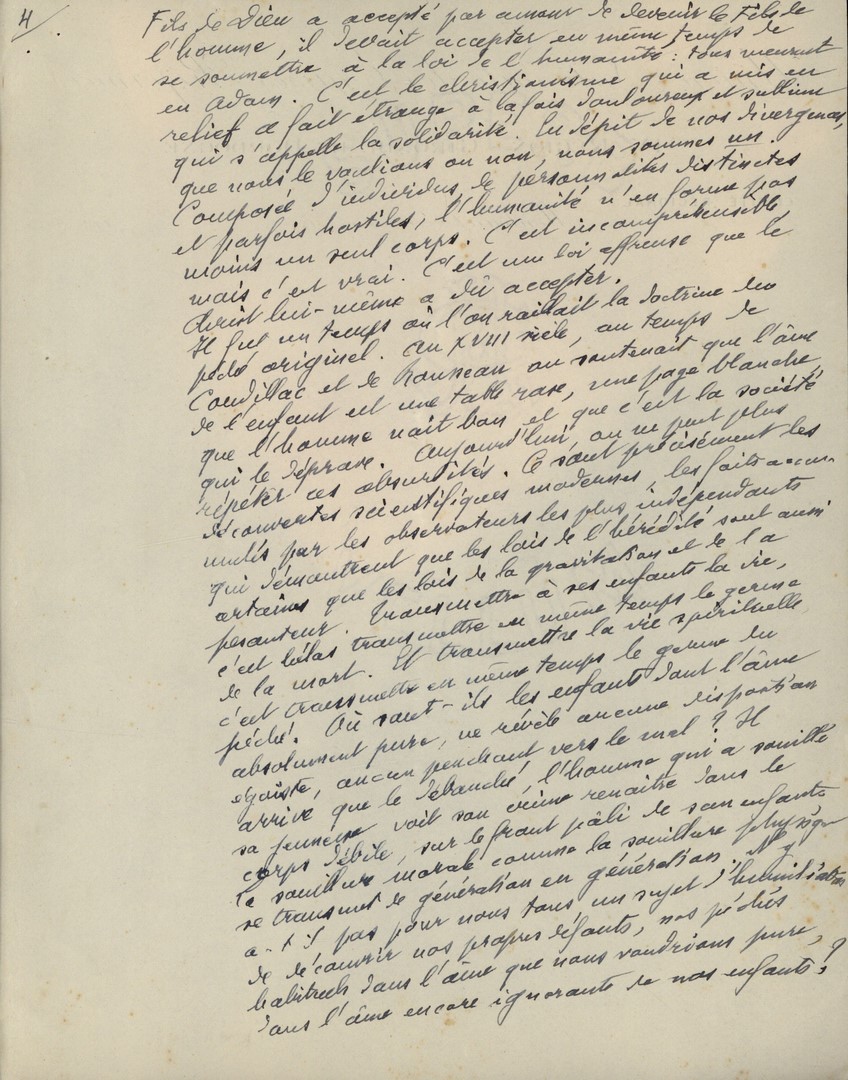 4
Fils de Dieu a accepté par amour de devenir le Fils de
l'homme, il devait accepter en même temps de
se soumettre à la loi de l'humanité : tous meurent
en Adam. C'est le christianisme qui a mis en
relief ce fait étrange à la fois douloureux et sublime
qui s'appelle la solidarité. En dépit de nos divergences,
que nous le voulions ou non, nous sommes un.
Composée d'individus, de personnalités distinctes
et parfois hostiles, l'humanité n'en forme pas
moins un seul corps. C'est incompréhensible,
mais c'est vrai. C'est une loi affreuse que le
Christ lui-même a dû accepter.
Il fut un temps où l'on raillait la doctrine du
péché originel. Au XVIII siècle, au temps de
Condillac et de Rousseau on soutenait que l'âme
de l'enfant est une table rase, une page blanche,
que l'homme nait bon et que c'est la société
qui le déprave. Aujourd'hui, on ne peut plus
répéter ces absurdités. Ce sont précisément les
découvertes scientifiques modernes, les faits accu-
mulés par les observateurs les plus indépendants
qui démontrent que les lois de l'hérédité sont aussi
certaines que les lois de la gravitation et de la
pesanteur. Transmettre à ses enfants la vie,
c'est hélas transmettre en même temps le germe
de la mort. Et transmettre la vie spirituelle,
c'est transmettre en même temps le germe du
péché. Où sont-ils les enfants dont l'âme
absolument pure, ne révèle aucune disposition
égoïste, aucun penchant vers le mal ? Il
arrive que le débauché, l'homme qui a souillé
sa jeunesse voit son crime renaître dans le
corps débile, sur le front pâli de son enfant.
La souillure morale comme la souillure physique
se transmet de génération en génération. N'y
a-t-il pas pour nous tous un sujet d'humiliation
de découvrir nos propres défauts, nos péchés
habituels dans l'âme que nous voudrions pure,
dans l'âme encore ignorante de nos enfants ?